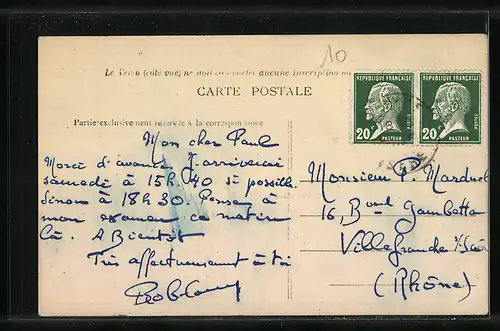 10
Le Verso (côté vue) ne doit comporter aucune Inscription
CARTE POSTALE
Partie exclusivement réservée à la correspondance
REPUBLIQUE FRANÇAISE
20 c
POSTES
PASTEUR
REPUBLIQUE FRANÇAISE
20 c
POSTES
PASTEUR
Mon cher Paul
Merci d'avance J'arriverai
samedi à 15h.40 si possible.
Sinon à 18h30. Pense à
mon examen ce matin
là. A Bientôt
Très affectueusement à toi
Monsieur P. Marduel
16, Bould Gambetta
Villefranche s/Saône
(Rhône)